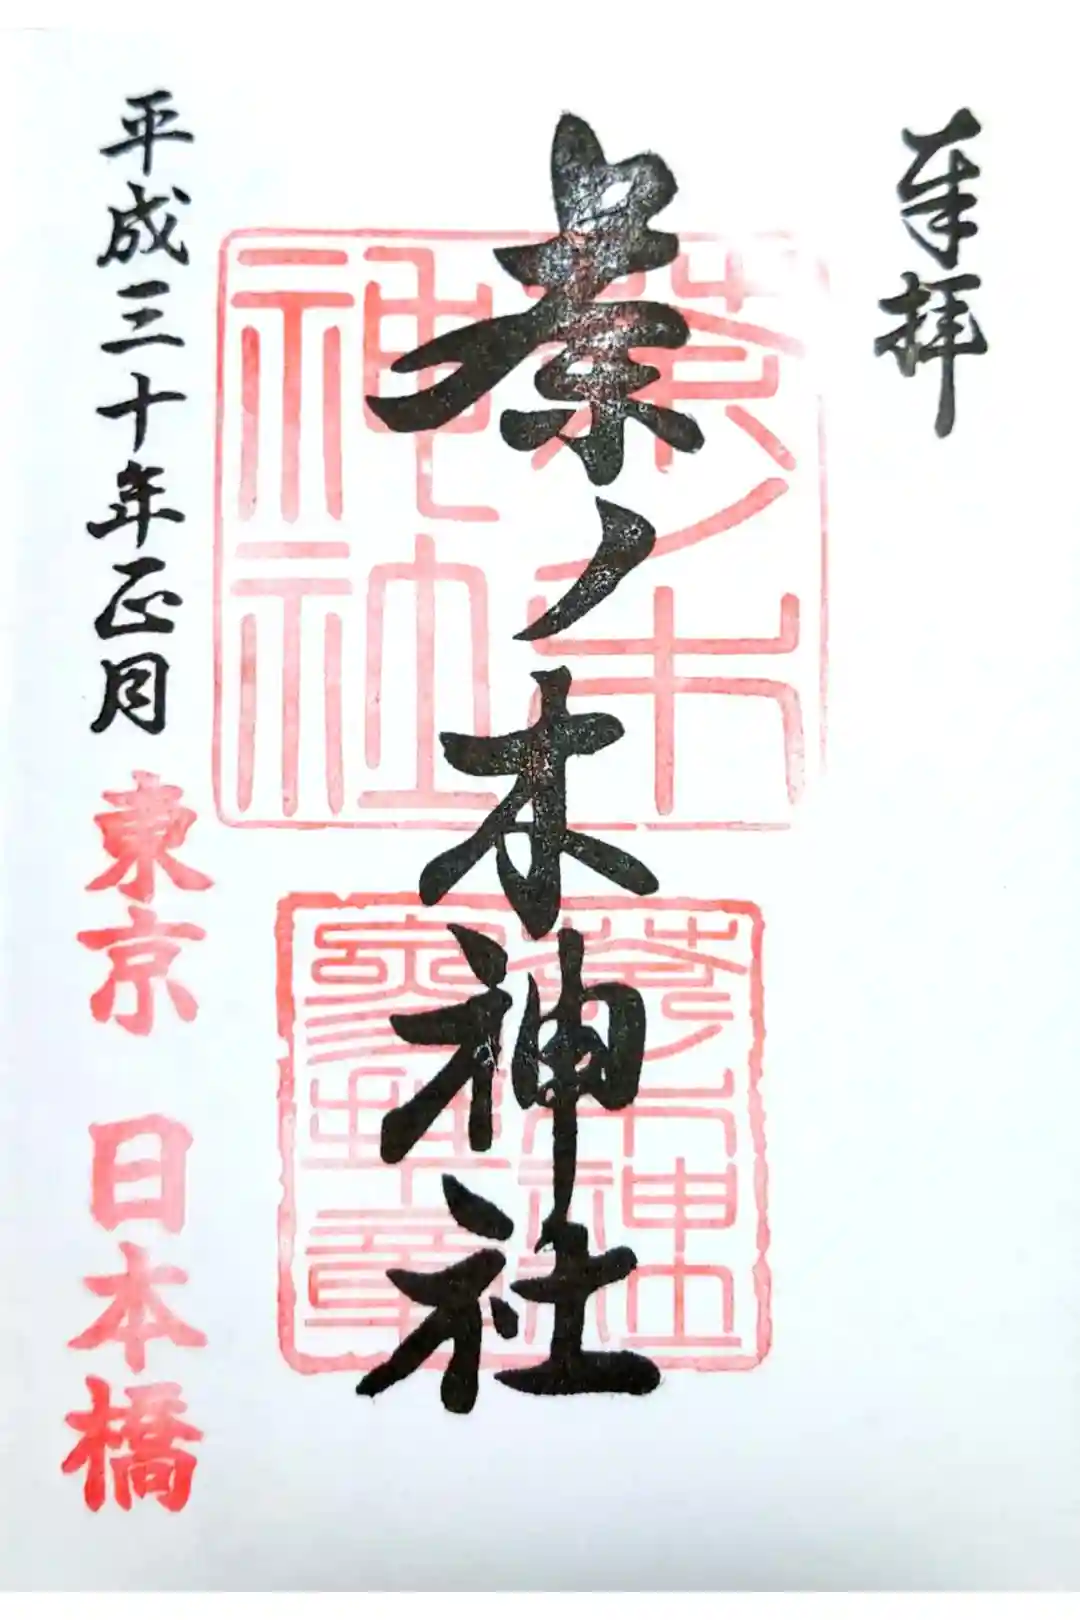 奉拝
茶ノ木神社
平成三十年正月
東京 日本橋
茶ノ木
神社
茶ノ木神社